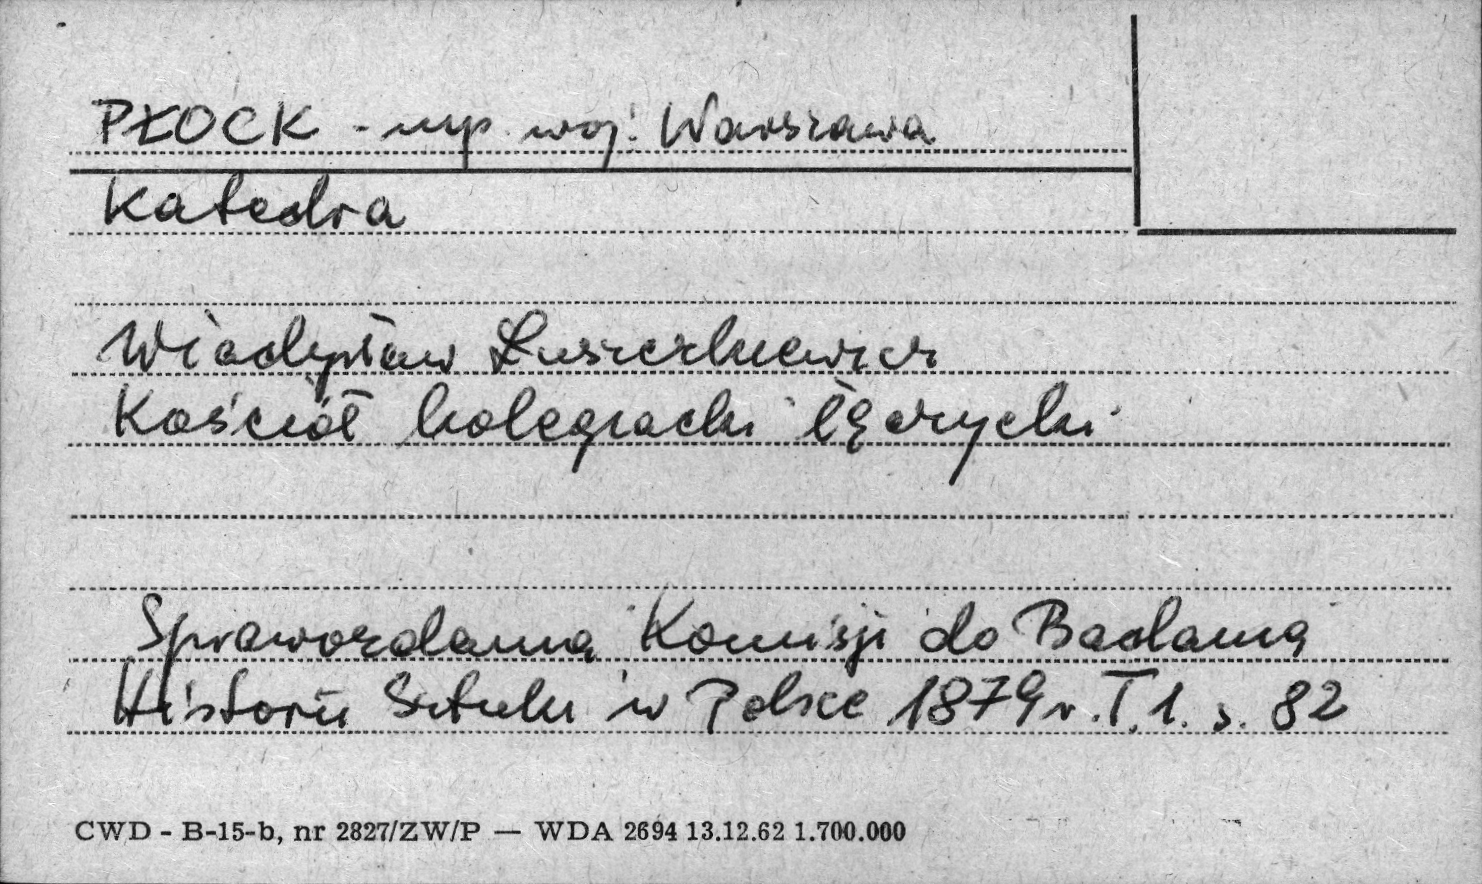 PŁOCK - mp. woj. Warszawa
Katedra
Władysław Łuszczkiewicz
Kościół kolegiacki łęczycki
Sprawozdania Komisji do Badania
Historii Sztuki w Polsce 1879 r. T. 1. s. 82
CWD - B-15-b, nr 2827/ZW/P — WDA 2694 13.12.62 1.700.000